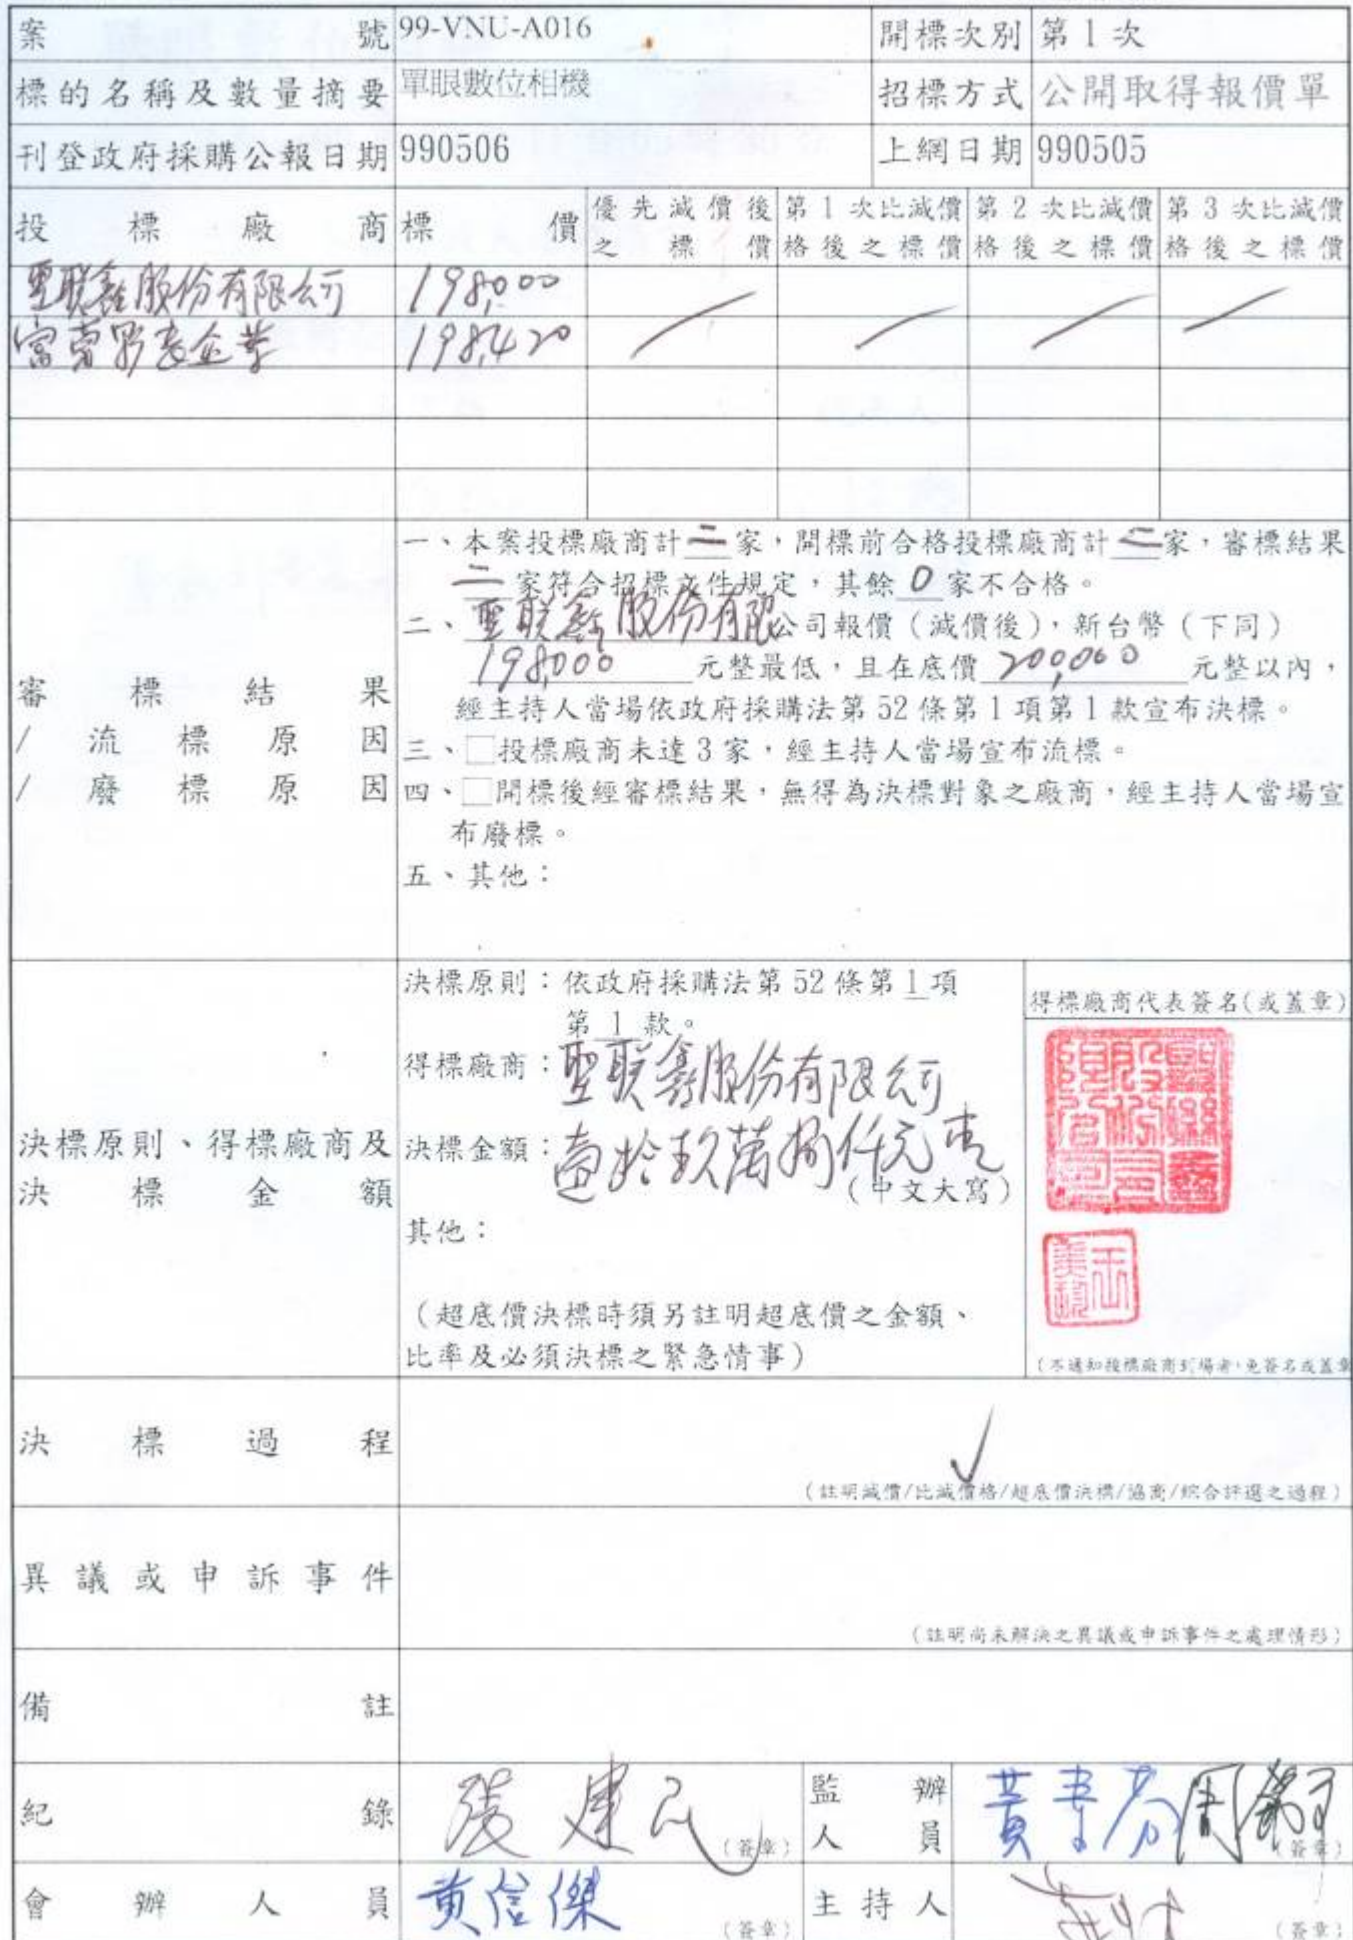 案號 99-VNU-A016 開標次別 第1次
標的名稱及數量摘要 單眼數位相機 招標方式 公開取得報價單
刊登政府採購公報日期 990506 上網日期 990505
投標廠商 標價 優先減價後之標價 第1次比減價格後之標價 第2次比減價格後之標價 第3次比減價格後之標價
聖联鑫股份有限公司 198,000
198,420
審標結果
/流標原因
/廢標原因
一、本案投標廠商計二家，開標前合格投標廠商計二家，審標結果
二家符合招標文件規定，其餘0家不合格。
二、聖联鑫股份有限公司報價（減價後），新台幣（下同）
198,000元整最低，且在底價200,000元整以內，
經主持人當場依政府採購法第52條第1項第1款宣布決標。
三、□投標廠商未達3家，經主持人當場宣布流標。
四、□開標後經審標結果，無得為決標對象之廠商，經主持人當場宣
布廢標。
五、其他：
決標原則、得標廠商及
決標金額
決標原則：依政府採購法第52條第1項
第1款。
得標廠商：聖联鑫股份有限公司
決標金額：壹拾玖萬捌仟元整
（中文大寫）
其他：
（超底價決標時須另註明超底價之金額、
比率及必須決標之緊急情事）
得標廠商代表簽名(或蓋章)
（不通知投標廠商到場者，免簽名或蓋章
決標過程
（註明減價/比減價格/超底價決標/協商/綜合評選之過程）
異議或申訴事件
（註明尚未解決之異議或申訴事件之處理情形）
備註
紀錄 張建民（簽章） 監辦人員 （簽章）
會辦人員 黃信傑（簽章） 主持人 （簽章）